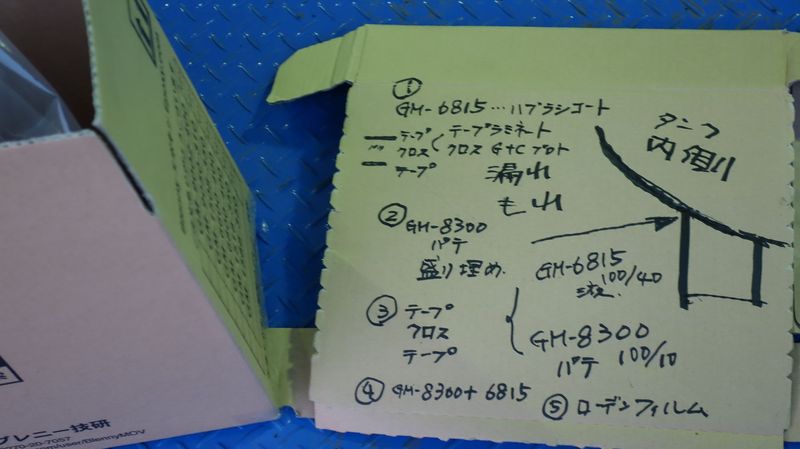 ①
GM-6815…ハブラシコート
テープ
クロス
テープ
テープラミネート
クロス G+C プト
漏れ
もれ
②
GM-8300
パテ
盛り埋め
③ テープ
クロス
テープ
GM-6815
100/40
液
GM-8300
パテ 100/10
④ GM-8300+6815
⑤ ローデンフィルム
タンク
内側
ブレニー技研
0770-20-7057
.com/user/BlennyMOV